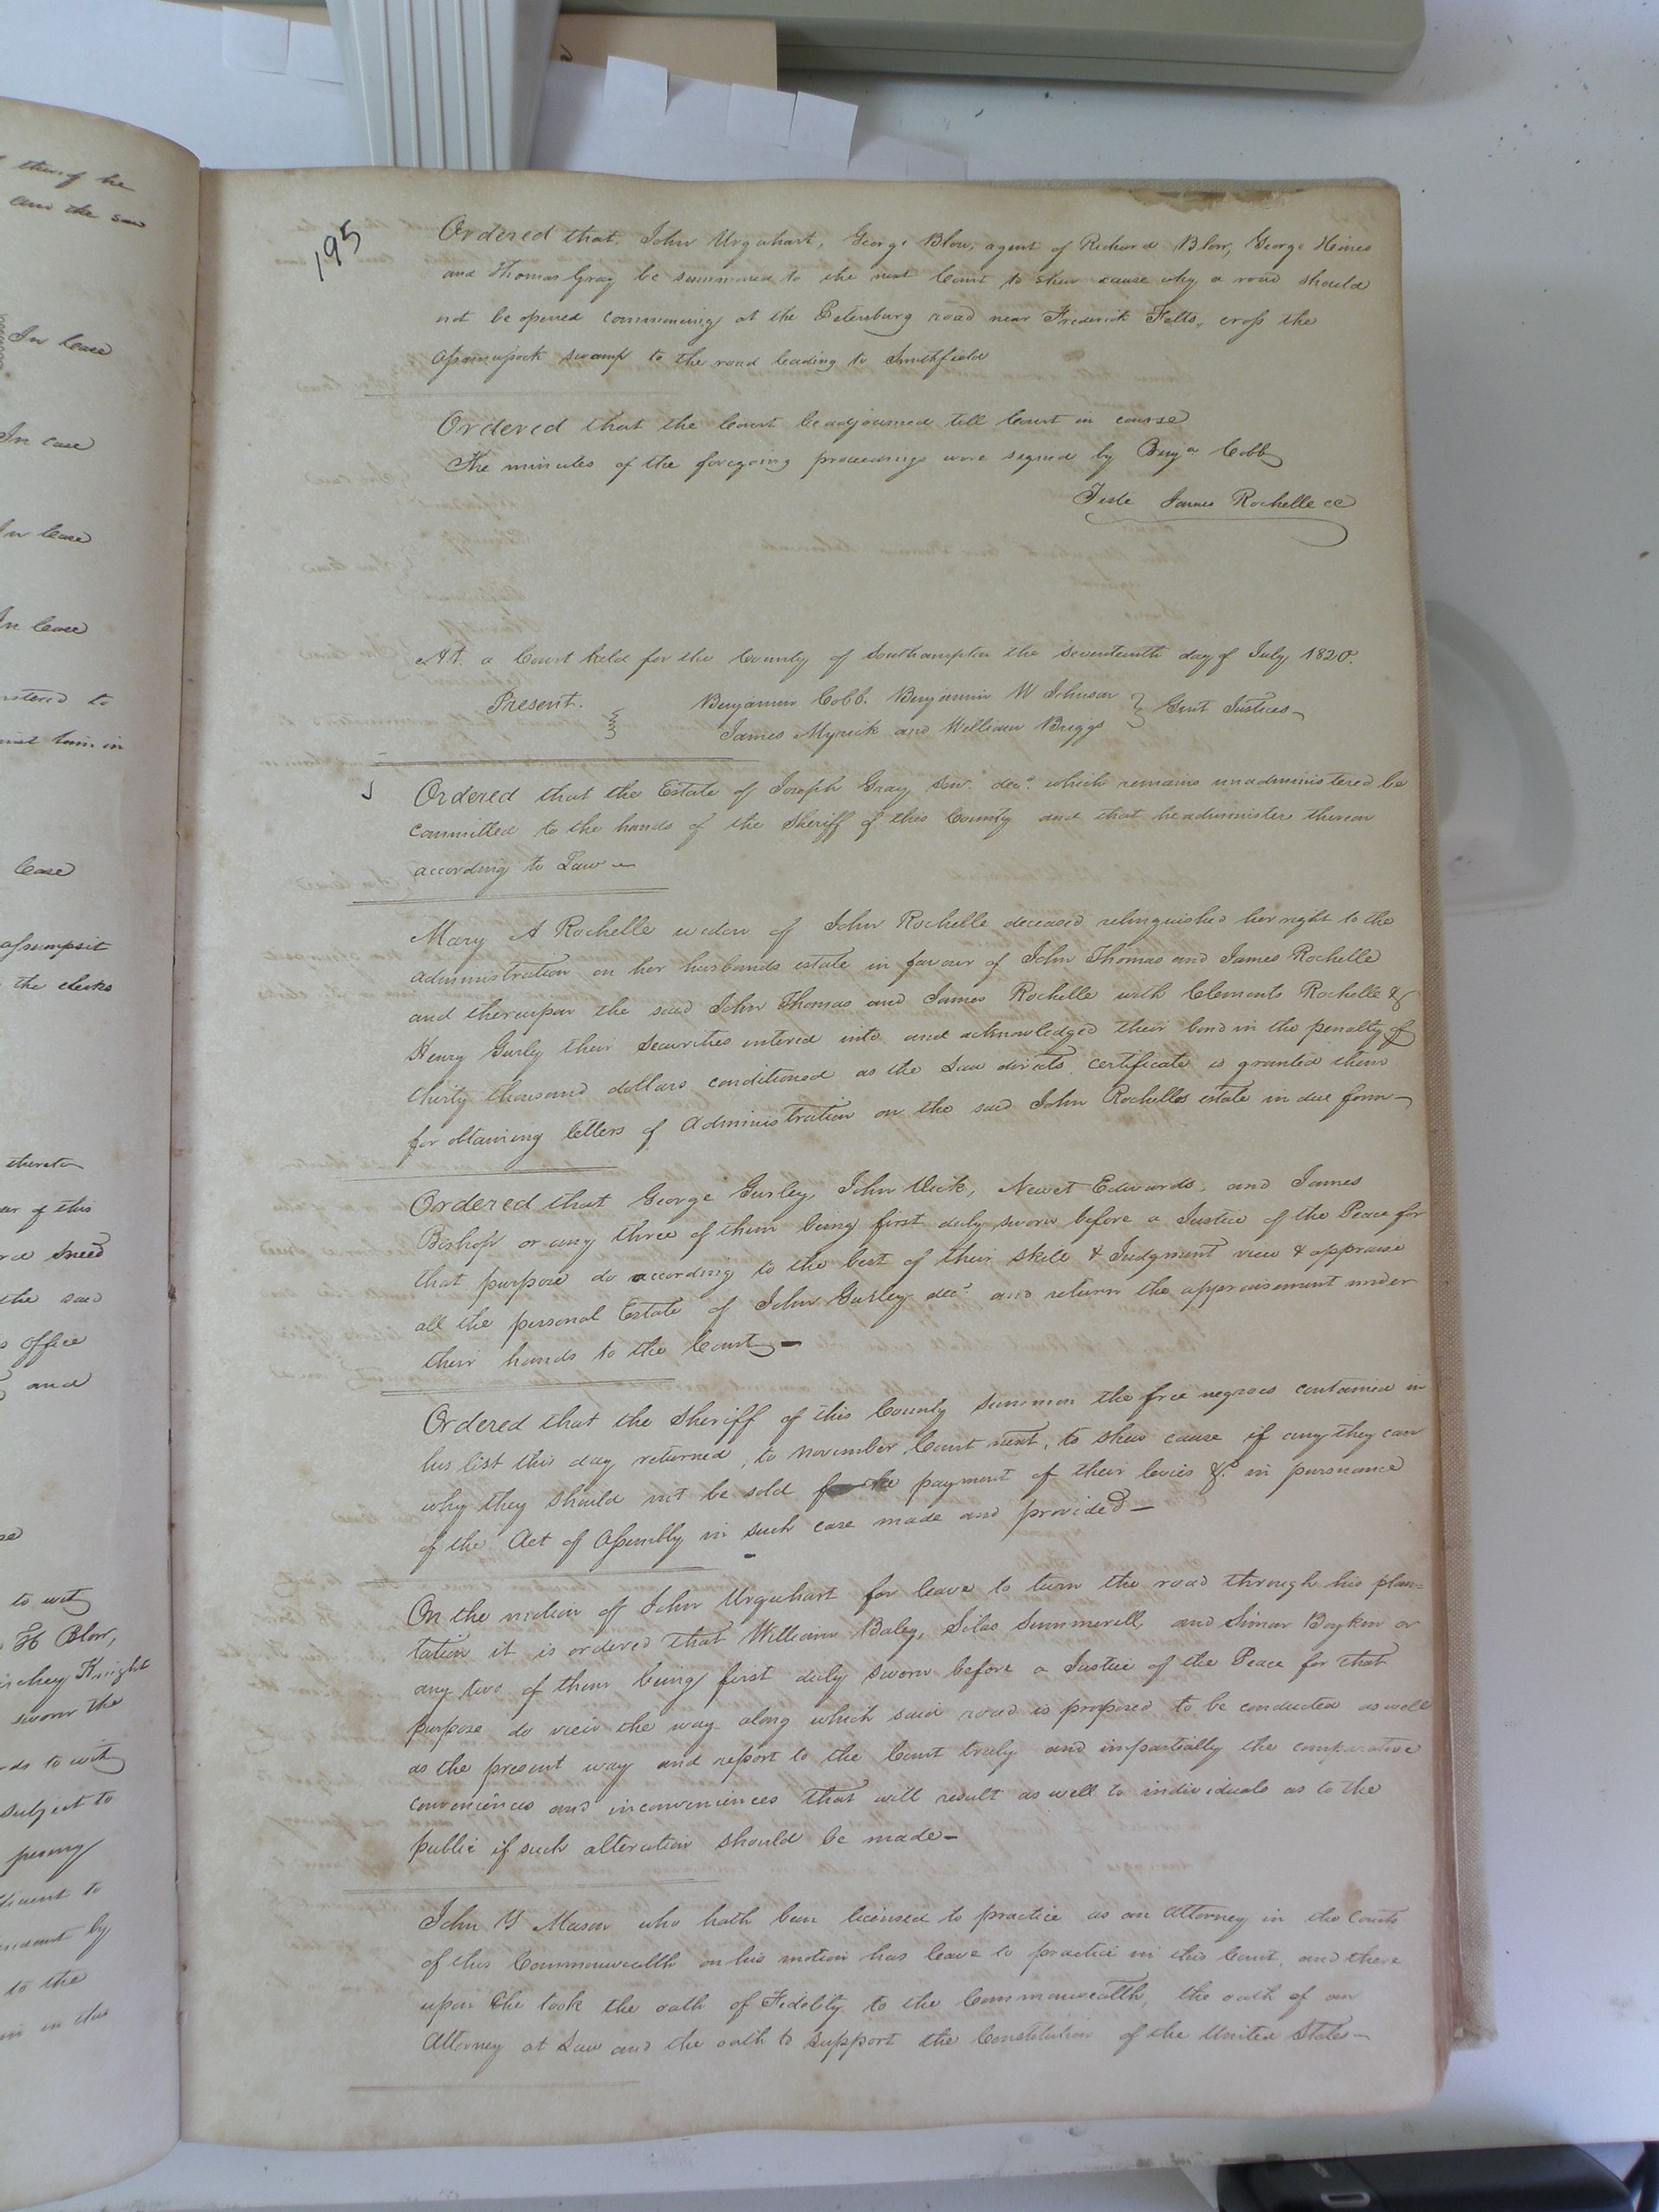 thereof he
and the said
In Case
In case
In Case
In Case
to
in
Case
assumpsit
the clerks
thereto
of this
the said
office
and
to wit
H Blow,
Knight
sworn the
to wit
subject to
to
by
to the
in this
195
Ordered that John Urquhart, George Blow, agent of Richard Blow, George Hines
and Thomas Gray be summoned to the next Court to shew cause why a road should
not be opened commencing at the Petersburg road near Frederick Felts, cross the
swamp to the road leading to Smithfield
Ordered that the Court be adjourned till Court in course
The minutes of the foregoing proceedings were signed by Benja Cobb
Teste James Rochelle CC
At a Court held for the County of Southampton the Seventeenth day of July 1820.
Present. Benjamin Cobb. Benjamin W Johnson } Gent Justices
James Myrick and William Briggs
Ordered that the Estate of Joseph Gray Senr decd which remains unadministered be
committed to the hands of the Sheriff of this County and that he administer thereon
according to Law
Mary A Rochelle widow of John Rochelle deceased relinquished her right to the
administration on her husbands estate in favour of John Thomas and James Rochelle
and thereupon the said John Thomas and James Rochelle with Clements Rochelle &
Henry Gurly their Securities entered into and acknowledged their bond in the penalty of
thirty thousand dollars conditioned as the Law directs certificate is granted them
for obtaining letters of Administration on the said John Rochelles estate in due form
Ordered that George Gurley, John Vick, Newet Edwards, and James
Bishop or any three of them being first duly sworn before a Justice of the Peace for
that purpose do according to the best of their skill & Judgment view & appraise
all the personal Estate of John Gurley decd and return the appraisement under
their hands to the Court
Ordered that the Sheriff of this County summon the free negroes contained in
his list this day returned, to November Court next, to shew cause if any they can
why they should not be sold for the payment of their levies &c in pursuance
of the Act of Assembly in such case made and provided
On the motion of John Urquhart for leave to turn the road through his plan=
tation it is ordered that William Baley, Silas Summerell, and Simon Boykin or
any two of them being first duly sworn before a Justice of the Peace for that
purpose do view the way along which said road is proposed to be conducted as well
as the present way and report to the Court truly and impartially the comparative
conveniences and inconveniences that will result as well to individuals as to the
public if such alteration should be made
John Y Mason who hath been licensed to practice as an Attorney in the Courts
of this Commonwealth on his motion has leave to practice in this Court, and there
upon he took the oath of Fidelity to the Commonwealth, the oath of an
Attorney at Law and the oath to support the Constitution of the United States